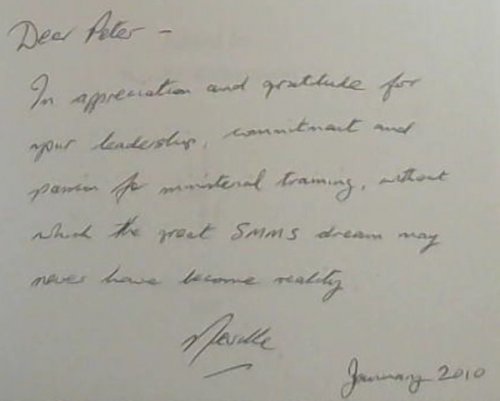 Dear Peter -
In appreciation and gratitude for
your leadership, commitment and
passion for ministerial training, without
which the great SMMS dream may
never have become reality
Neville
January 2010